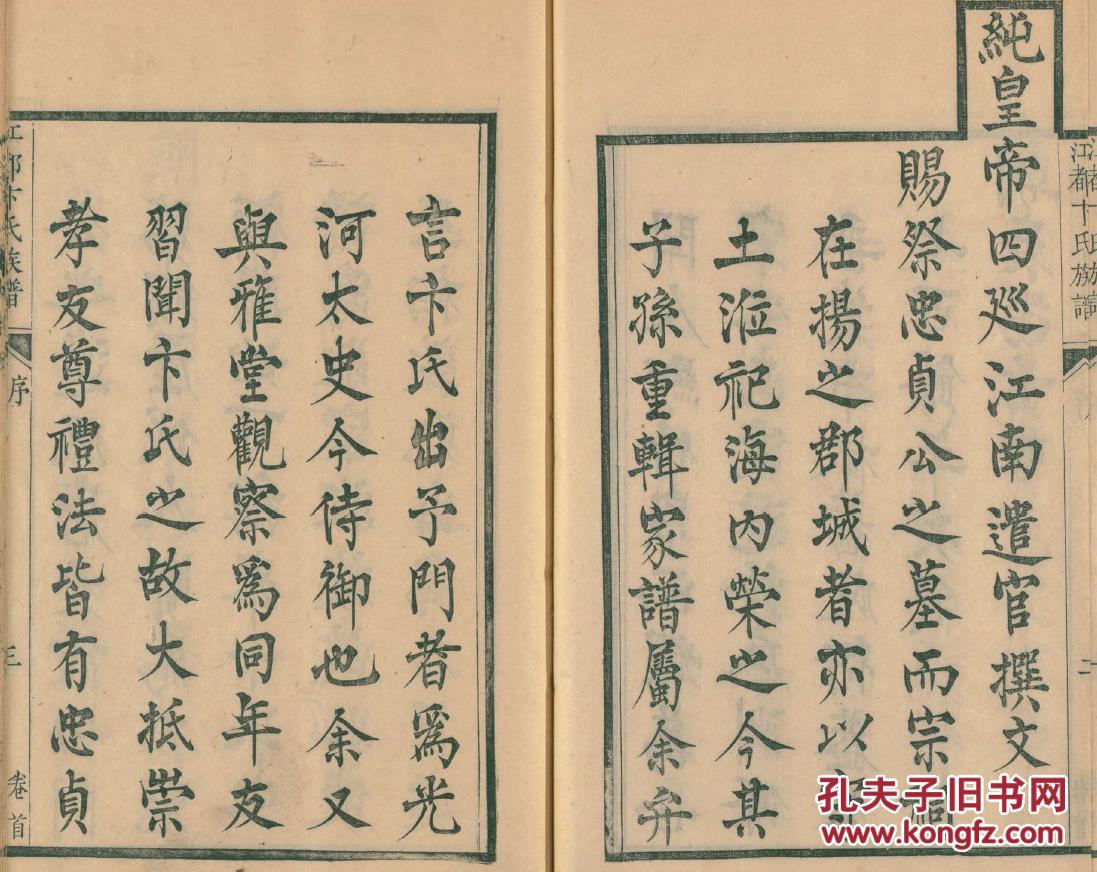 純皇帝四巡江南遣官撰文
賜祭忠貞公之墓而宗祠
在揚之郡城者亦以
土涖祀海内榮之今其
子孫重輯家譜屬余弁
言卞氏出予門者爲光
河太史今侍御也余又
與雅堂觀察爲同年友
習聞卞氏之故大抵崇
孝友尊禮法皆有忠貞
江都卞氏族譜
二
江都卞氏族譜
序
三
卷首
孔夫子旧书网
www.kongfz.com